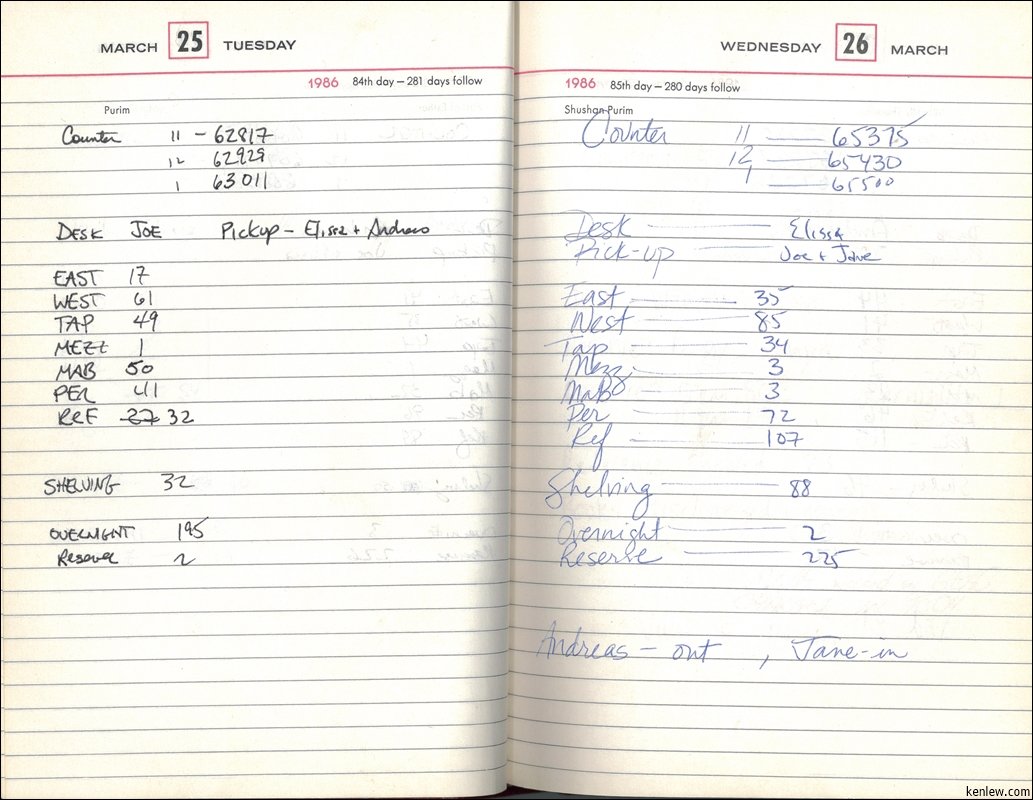 MARCH 25 TUESDAY
1986 84th day — 281 days follow
Purim
Counter 11 - 62817
12 62929
1 63011
DESK JOE Pickup - Elissa + Andreas
EAST 17
WEST 61
TAP 49
MEZZ 1
MAB 50
PER 41
REF 27 32
SHELVING 32
OVERNIGHT 195
Reserve 2
WEDNESDAY 26 MARCH
1986 85th day — 280 days follow
Shushan Purim
Counter 11 — 65375
12 — 65430
1 — 65500
Desk — Elissa
Pick-up — Joe + Jane
East — 35
West — 85
Tap — 34
Mezz — 3
MaB — 3
Per — 72
Ref — 107
Shelving — 88
Overnight — 2
Reserve — 225
Andreas — out , Jane-in
kenlew.com